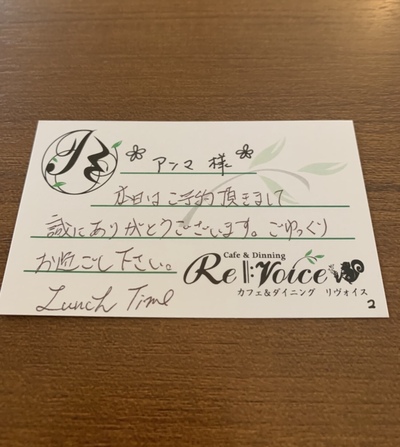 アンマ 様
本日はご予約頂きまして
誠にありがとうございます。ごゆっくり
お過ごし下さい。
Lunch Time
Cafe & Dinning
Re:Voice
カフェ&ダイニング リヴォイス
2